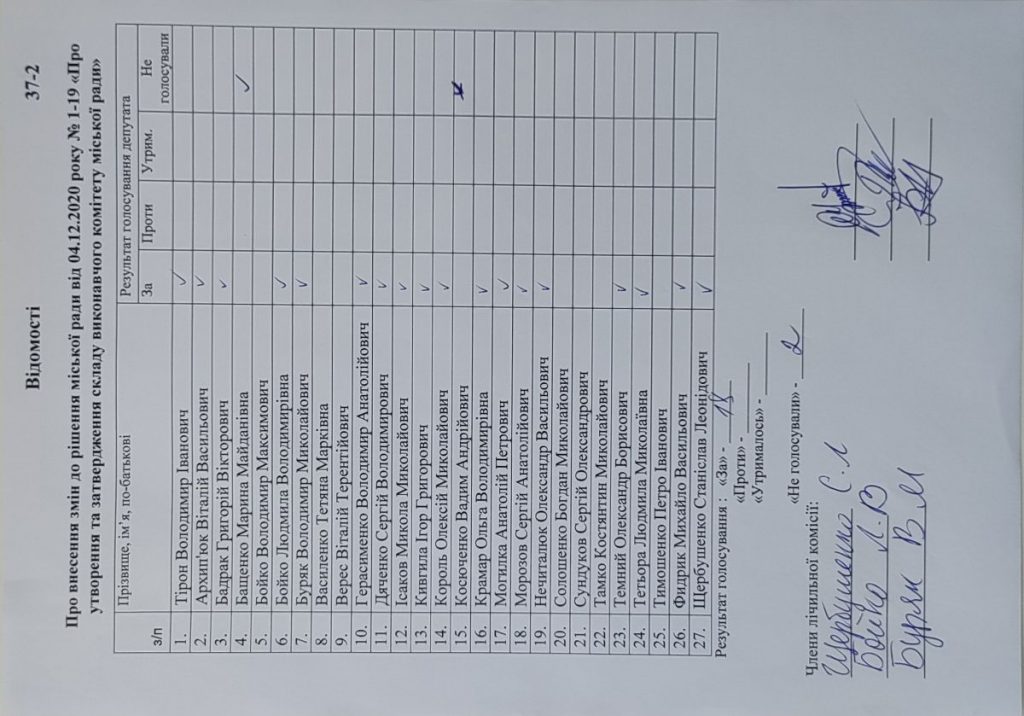 Відомості 37-2
Про внесення змін до рішення міської ради від 04.12.2020 року № 1-19 «Про
утворення та затвердження складу виконавчого комітету міської ради»
з/п Прізвище, ім’я, по-батькові Результат голосування депутата
За Проти Утрим. Не голосували
1. Тірон Володимир Іванович ✓
2. Архип'юк Віталій Васильович ✓
3. Бадрак Григорій Вікторович ✓
4. Бащенко Марина Майданівна ✓
5. Бойко Володимир Максимович
6. Бойко Людмила Володимирівна ✓
7. Буряк Володимир Миколайович ✓
8. Василенко Тетяна Марківна
9. Верес Віталій Терентійович
10. Герасименко Володимир Анатолійович ✓
11. Дяченко Сергій Володимирович ✓
12. Ісаков Микола Миколайович ✓
13. Кивгила Ігор Григорович ✓
14. Король Олексій Миколайович ✓
15. Косюченко Вадим Андрійович
16. Крамар Ольга Володимирівна ✓
17. Могилка Анатолій Петрович ✓
18. Морозов Сергій Анатолійович ✓
19. Нечиталюк Олександр Васильович ✓
20. Солошенко Богдан Миколайович
21. Сундуков Сергій Олександрович
22. Тамко Костянтин Миколайович
23. Темний Олександр Борисович ✓
24. Тетьора Людмила Миколаївна ✓
25. Тимошенко Петро Іванович
26. Фидрик Михайло Васильович ✓
27. Щербушенко Станіслав Леонідович ✓
Результат голосування : «За» - 18
«Проти» -
«Утрималось» -
«Не голосували» - 2
Члени лічильної комісії:
Щербушенко С.Л
Бойко Л.В
Буряк В М